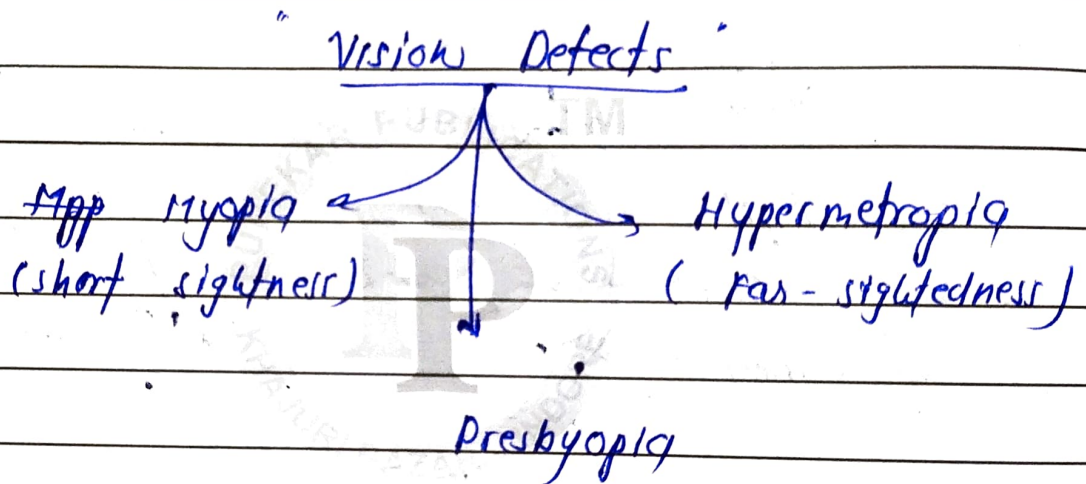 " Vision Defects "
Myopia
(short sightness)
Hypermetropia
( Far - sightedness)
Presbyopia
TM
P